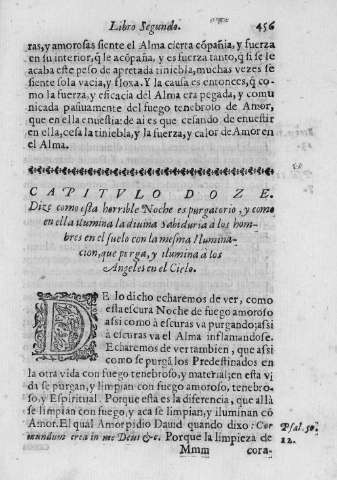 Libro Segundo. 456
ras, y amorosas siente el Alma cierta cōpañia, y fuerza
en su interior, q̃ le acōpaña, y es fuerza tanto, q̃ si se le
acaba este peso de apretada tiniebla, muchas vezes se
siente sola vacia, y floxa. Y la causa es entonces, q̃ co
mo la fuerza, y eficacia del Alma era pegada, y comu
nicada pasiuamente del fuego tenebroso de Amor,
que en ella enuestia: de ai es que cesando de enuestir
en ella, cesa la tiniebla, y la fuerza, y calor de Amor en
el Alma.
CAPITVLO DOZE.
Dize como esta horrible Noche es purgatorio, y como
en ella ilumina la diuina Sabiduria a los hom-
bres en el suelo con la mesma Ilumina-
cion, que purga, y ilumina à los
Angeles en el Cielo.
DE lo dicho echaremos de ver, como
esta escura Noche de fuego amoroso
assi como à escuras va purgando; assi
à escuras va el Alma inflamandose.
Echaremos de ver tambien, que assi
como se purgā los Predestinados en
la otra vida con fuego tenebroso, y material; en esta vi
da se purgan, y limpian con fuego amoroso, tenebro-
so, y Espiritual. Porque esta es la diferencia, que allà
se limpian con fuego, y aca se limpian, y iluminan cō
Amor. El qual Amor pidio Dauid quando dixo: Cor
mundum crea in me Deus &c. Porque la limpieza de
Psal. 50.
12.
Mmm cora-